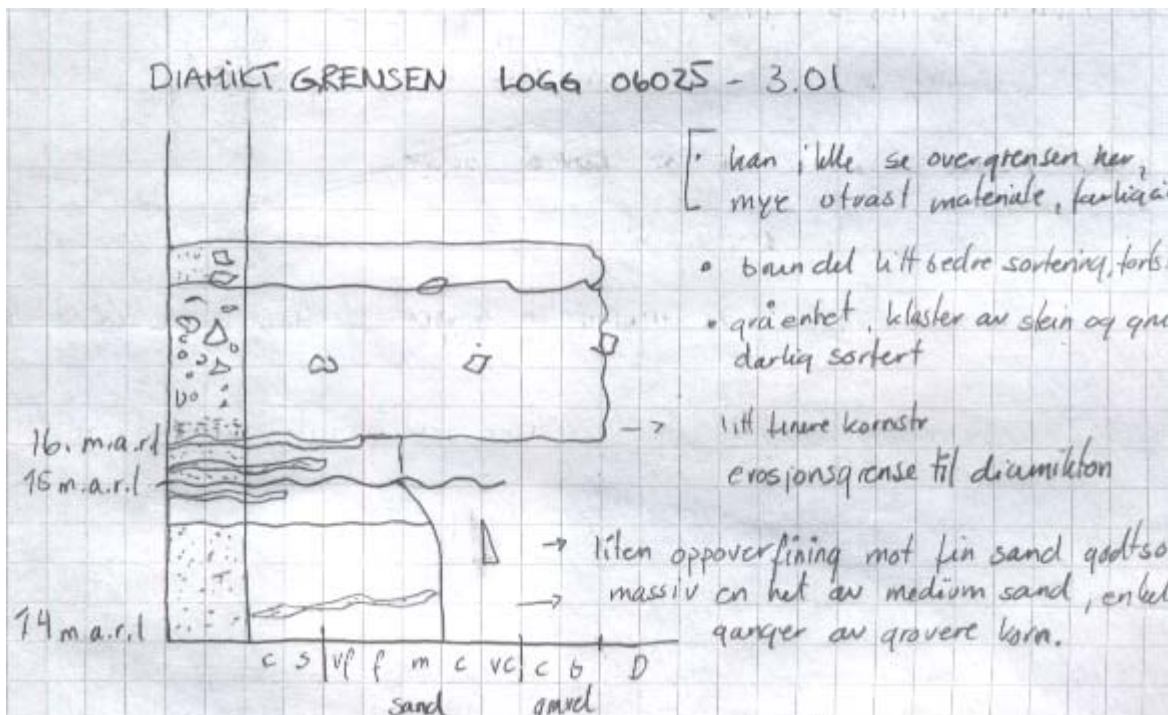 DIAMIKT GRENSEN LOGG 06025 - 3.01
kan ikke se overgrensen her,
mye utrast materiale,
brun del litt bedre sortering,
grå enhet, klaster av stein og
dårlig sortert
16. m.a.r.l
→ litt finere kornstr
15 m.a.r.l
erosjonsgrense til diamikton
→ liten oppoverfining mot fin sand
→ massiv en het av medium sand,
ganger av grovere korn.
14 m.a.r.l
c s vf f m c vc c b D
sand gravel